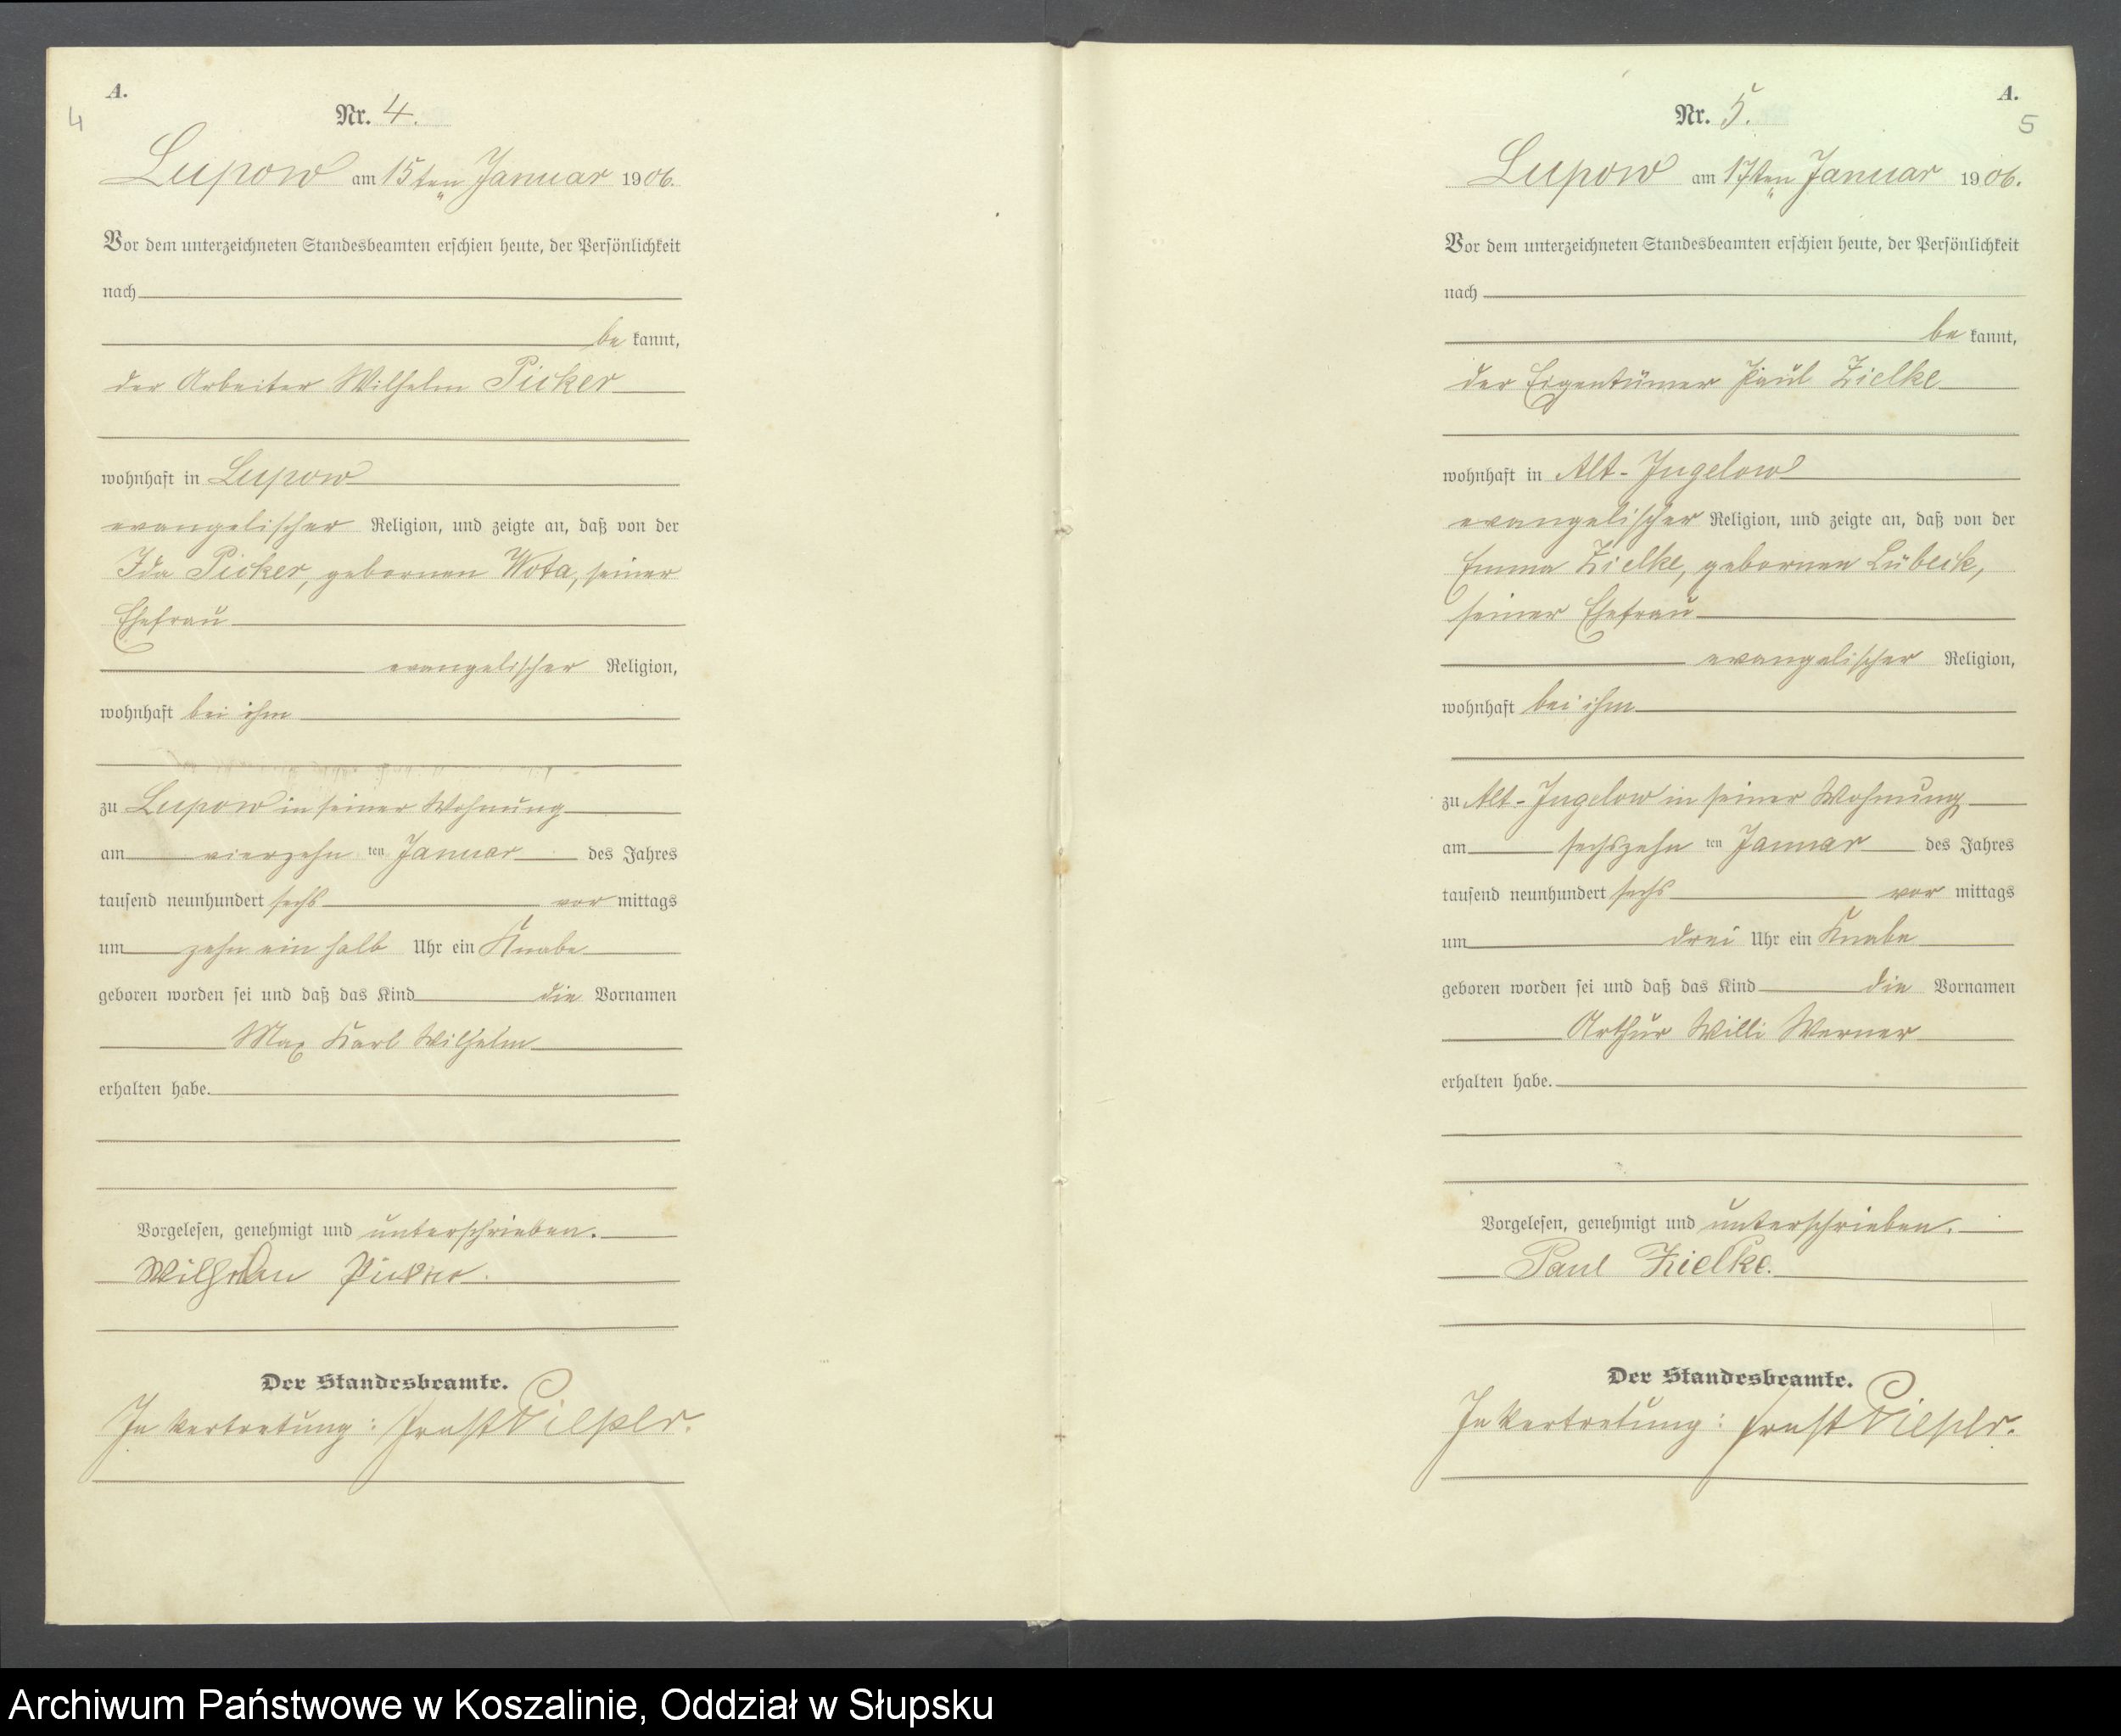 A.
4
Nr. 4.
Lupow am 15ten Januar 1906.
Vor dem unterzeichneten Standesbeamten erschien heute, der Persönlichkeit
nach
be kannt,
der Arbeiter Wilhelm Picker
wohnhaft in Lupow
evangelischer Religion, und zeigte an, daß von der
Ida Picker, gebornen Wota, seiner
Ehefrau
evangelischer Religion,
wohnhaft bei ihm
zu Lupow in seiner Wohnung
am vierzehn ten Januar des Jahres
tausend neunhundert sechs vor mittags
um zehn ein halb Uhr ein Knabe
geboren worden sei und daß das Kind die Vornamen
Max Karl Wilhelm
erhalten habe.
Vorgelesen, genehmigt und unterschrieben.
Wilhelm Picker.
Der Standesbeamte.
In Vertretung: Ernst
A.
5
Nr. 5.
Lupow am 17ten Januar 1906.
Vor dem unterzeichneten Standesbeamten erschien heute, der Persönlichkeit
nach
be kannt,
der Eigentümer Paul Zielke
wohnhaft in Alt-Jugelow
evangelischer Religion, und zeigte an, daß von der
Emma Zielke, gebornen Lübeck,
seiner Ehefrau
evangelischer Religion,
wohnhaft bei ihm
zu Alt-Jugelow in seiner Wohnung
am sechszehn ten Januar des Jahres
tausend neunhundert sechs vor mittags
um drei Uhr ein Knabe
geboren worden sei und daß das Kind die Vornamen
Arthur Willi Werner
erhalten habe.
Vorgelesen, genehmigt und unterschrieben.
Paul Zielke.
Der Standesbeamte.
In Vertretung: Ernst
Archiwum Państwowe w Koszalinie, Oddział w Słupsku